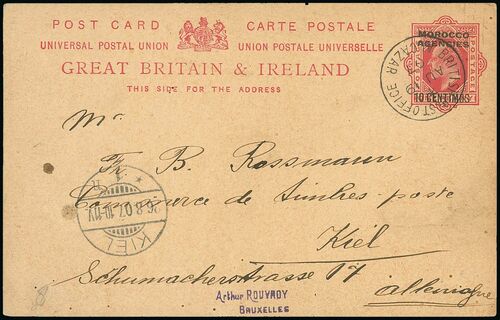 POST CARD CARTE POSTALE
UNIVERSAL POSTAL UNION UNION POSTALE UNIVERSELLE
GREAT BRITAIN & IRELAND
THIS SIDE FOR THE ADDRESS
MOROCCO
AGENCIES
10 CENTIMOS
BRITISH POST OFFICE
Mr.
Fr. B. Rossmann
Commerce de timbres-poste
Kiel
Schumacherstrasse 17
Allemagne
26.8.07.10-11V.
KIEL
Arthur ROUVROY
BRUXELLES